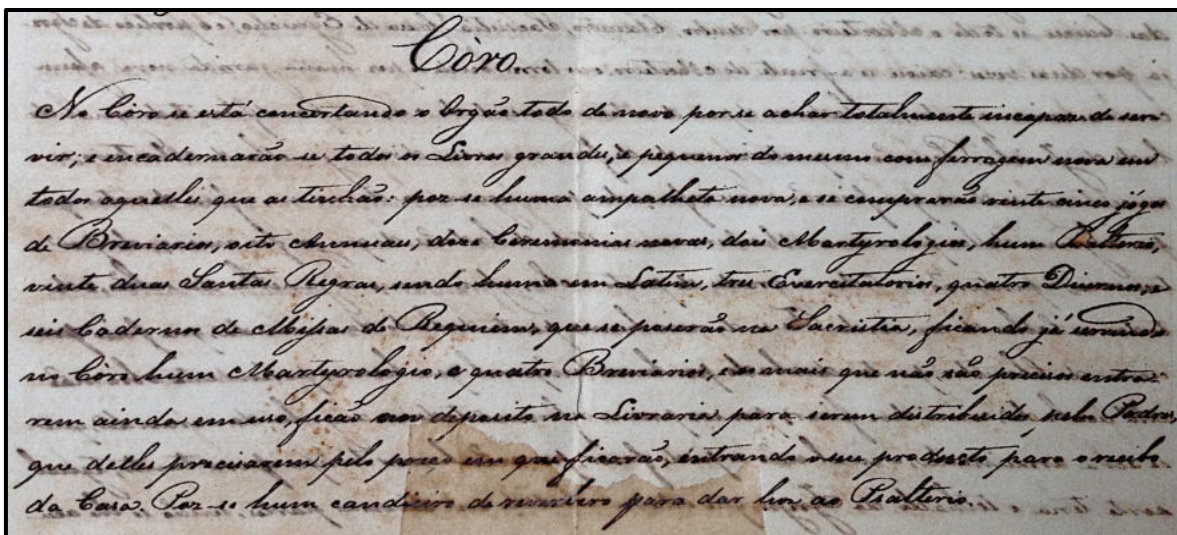 Côro.
No Côro se está concertando o Orgão todo de novo por se achar totalmente incapaz de ser-
vir; e encadernarão se todos os Livros grandes, e pequenos do mesmo com ferragem nova em
todos aquelles que as tinhão: poz se huma ampalheta nova, e se comprarão vinte cinco jógos
de Breviarios, oito Annuais, doze Ceremonias novas, dois Martyrologios, hum Psalterio,
vinte duas Santas Regras, sendo huma em Latim, tres Exercitatorios, quatro Diurnos, e
seis Cadernos de Missas de Requiem, que se poserão na Sacristia, ficando já servindo
no Côro hum Martyrologio, e quatro Breviarios, e os mais que não são precisos entra-
rem ainda em uso, ficão em deposito na Livraria para serem distribuidos pelos Padres,
que delles precisarem pelo preço em que ficarão, entrando o seu producto para o recibo
da Casa. Poz-se hum candieiro de reverbero para dar luz ao Psalterio.